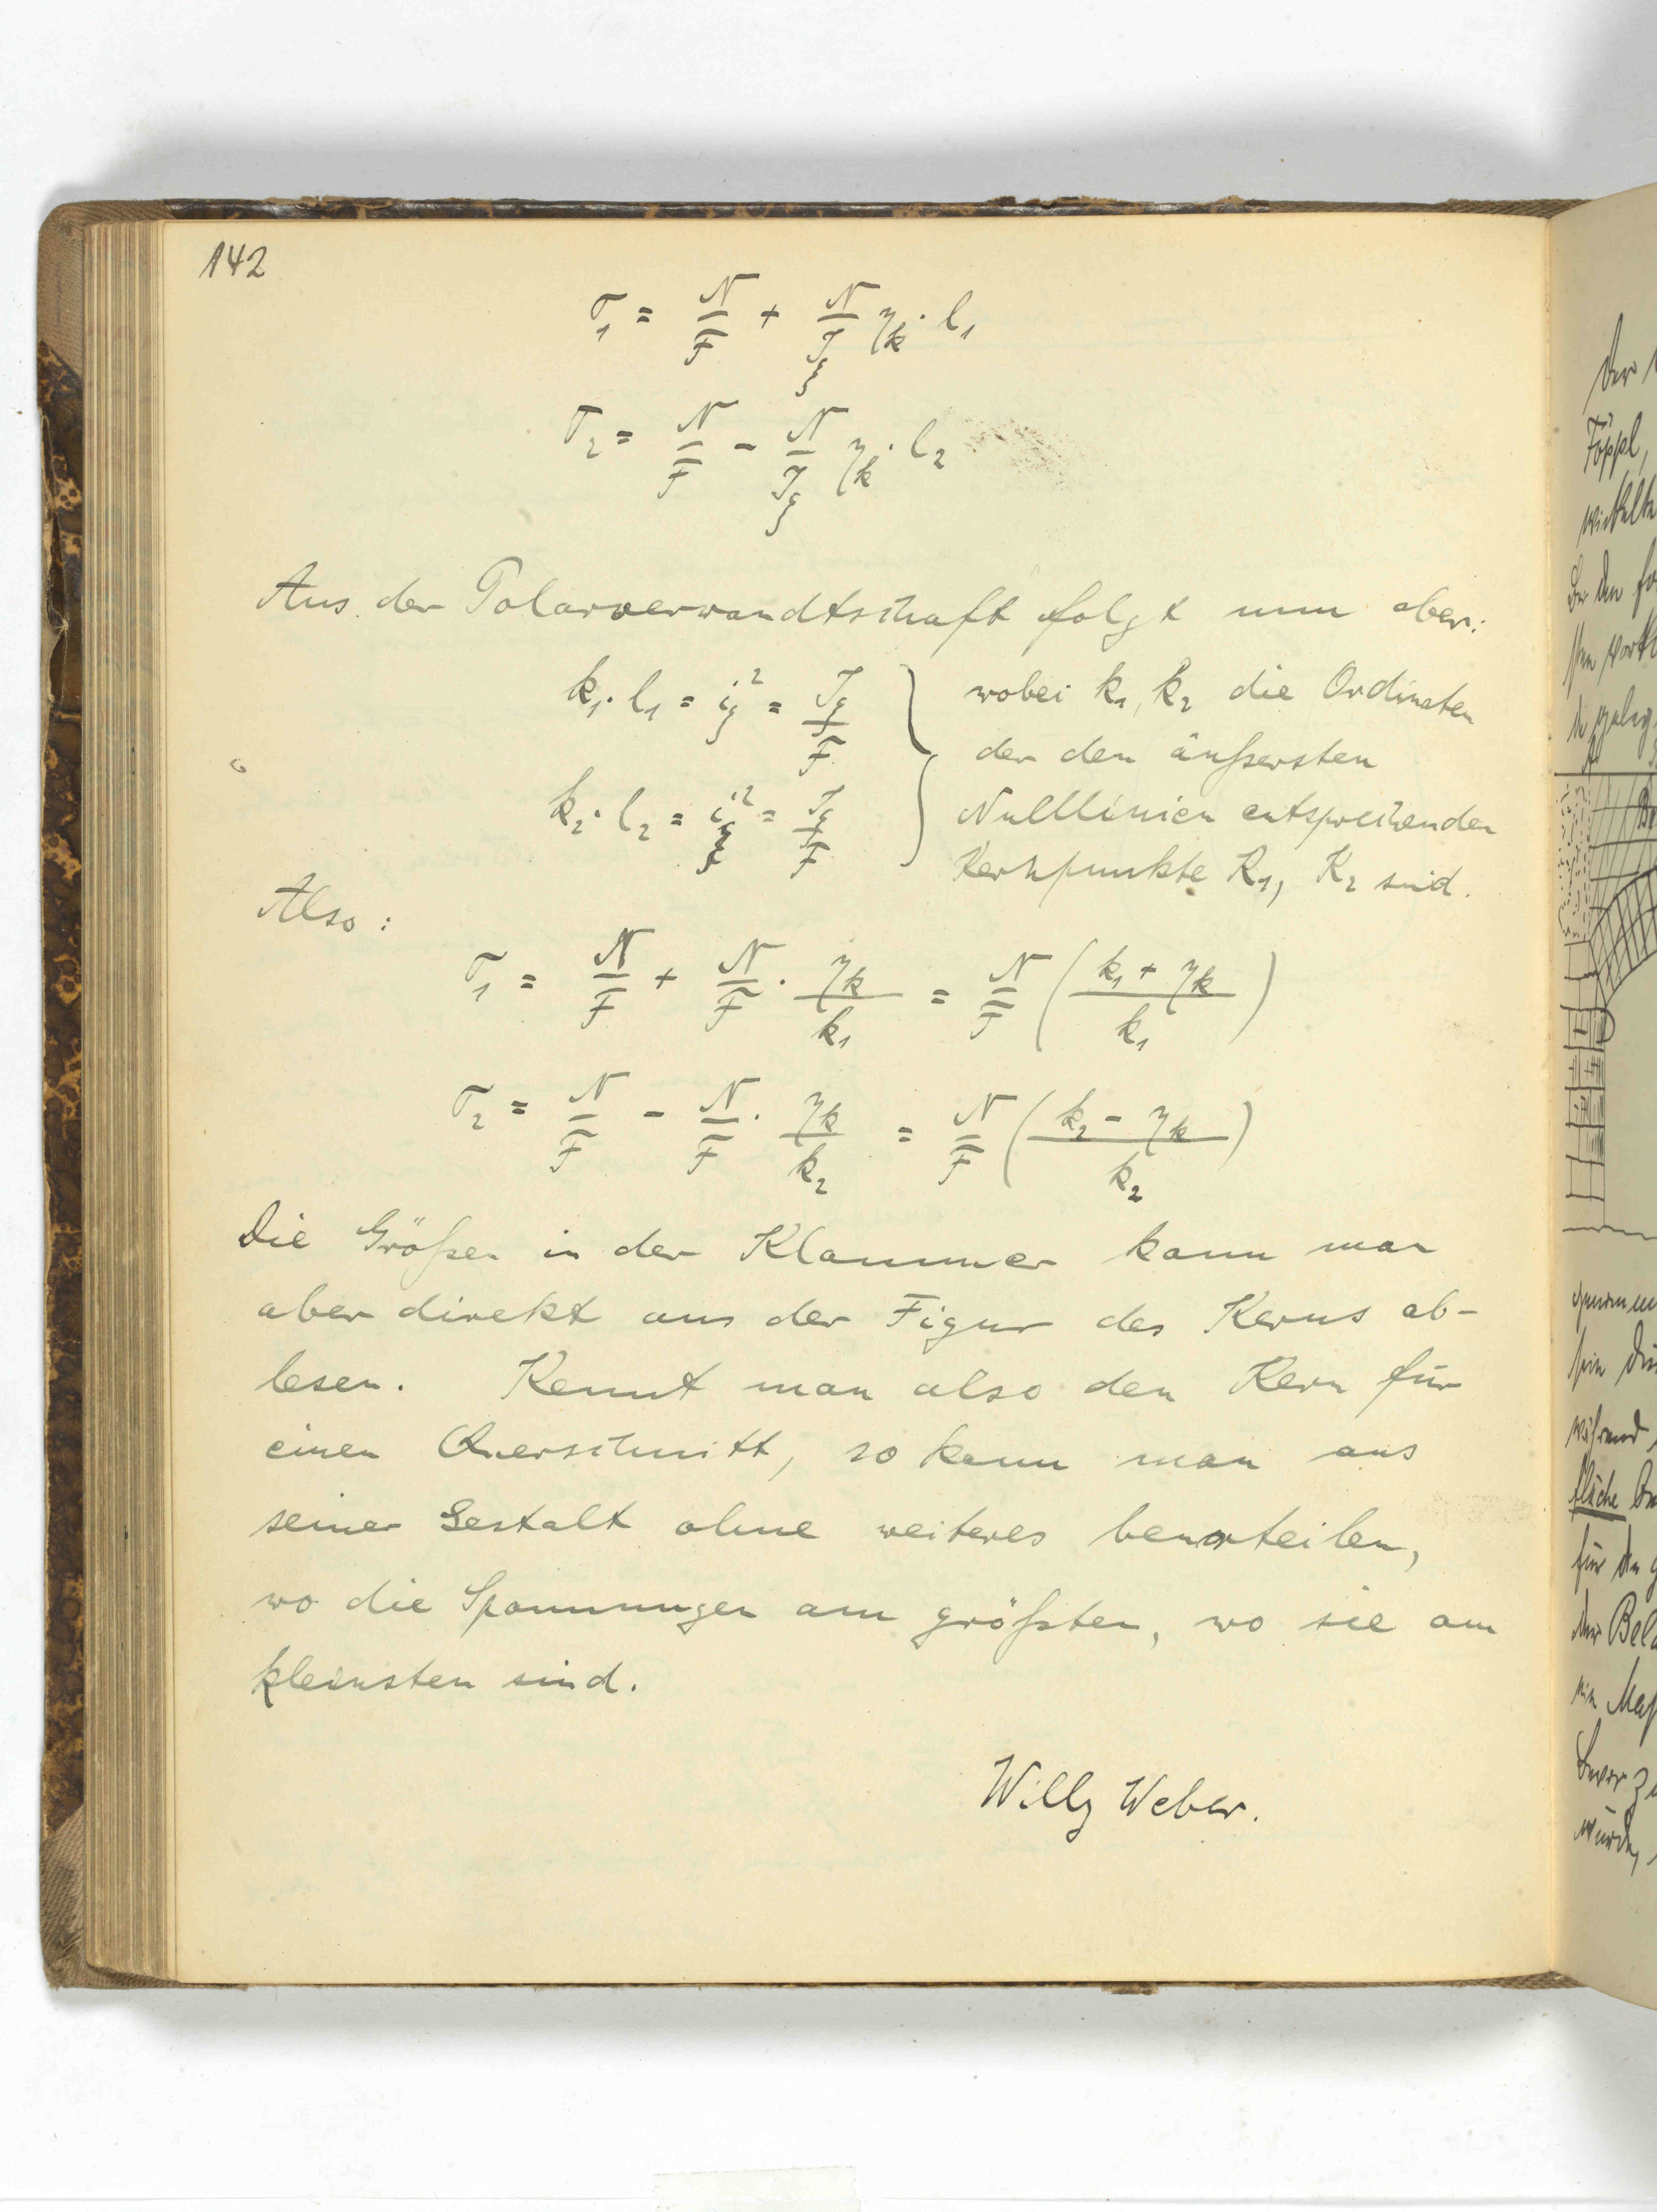 142
σ₁ = N/F + N/J_ξ η_k · l₁
σ₂ = N/F - N/J_ξ η_k · l₂
Aus der Polarverwandtschaft folgt nun aber:
k₁ · l₁ = i_ξ² = J_ξ/F } wobei k₁, k₂ die Ordinaten
der den äußersten
k₂ · l₂ = i_ξ² = J_ξ/F } Nulllinien entsprechenden
Kernpunkte K₁, K₂ sind.
Also:
σ₁ = N/F + N/F · η_k/k₁ = N/F ( (k₁ + η_k)/k₁ )
σ₂ = N/F - N/F · η_k/k₂ = N/F ( (k₂ - η_k)/k₂ )
Die Größen in der Klammer kann man
aber direkt aus der Figur des Kerns ab-
lesen. Kennt man also den Kern für
einen Querschnitt, so kann man aus
seiner Gestalt ohne weiteres beurteilen,
wo die Spannungen am größten, wo sie am
kleinsten sind.
Willy Weber.
Der
Föppl,
für